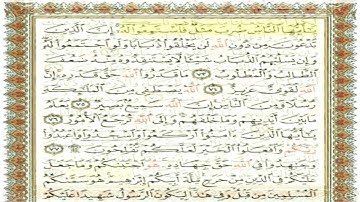 يَٰٓأَيُّهَا ٱلنَّاسُ ضُرِبَ مَثَلٌ فَٱسْتَمِعُوا۟ لَهُۥٓ إِنَّ ٱلَّذِينَ
تَدْعُونَ مِن دُونِ ٱللَّهِ لَن يَخْلُقُوا۟ ذُبَابًا وَلَوِ ٱجْتَمَعُوا۟ لَهُۥ
وَإِن يَسْلُبْهُمُ ٱلذُّبَابُ شَيْـًٔا لَّا يَسْتَنقِذُوهُ مِنْهُ ضَعُفَ
ٱلطَّالِبُ وَٱلْمَطْلُوبُ ٧٣ مَا قَدَرُوا۟ ٱللَّهَ حَقَّ قَدْرِهِۦٓ إِنَّ
ٱللَّهَ لَقَوِىٌّ عَزِيزٌ ٧٤ ٱللَّهُ يَصْطَفِى مِنَ ٱلْمَلَٰٓئِكَةِ
رُسُلًا وَمِنَ ٱلنَّاسِ إِنَّ ٱللَّهَ سَمِيعٌۢ بَصِيرٌ ٧٥ يَعْلَمُ
مَا بَيْنَ أَيْدِيهِمْ وَمَا خَلْفَهُمْ وَإِلَى ٱللَّهِ تُرْجَعُ ٱلْأُمُورُ ٧٦
يَٰٓأَيُّهَا ٱلَّذِينَ ءَامَنُوا۟ ٱرْكَعُوا۟ وَٱسْجُدُوا۟ وَٱعْبُدُوا۟
رَبَّكُمْ وَٱفْعَلُوا۟ ٱلْخَيْرَ لَعَلَّكُمْ تُفْلِحُونَ ٧٧
وَجَٰهِدُوا۟ فِى ٱللَّهِ حَقَّ جِهَادِهِۦ هُوَ ٱجْتَبَىٰكُمْ وَمَا جَعَلَ
عَلَيْكُمْ فِى ٱلدِّينِ مِنْ حَرَجٍ مِّلَّةَ أَبِيكُمْ إِبْرَٰهِيمَ هُوَ سَمَّىٰكُمُ
ٱلْمُسْلِمِينَ مِن قَبْلُ وَفِى هَٰذَا لِيَكُونَ ٱلرَّسُولُ شَهِيدًا عَلَيْكُمْ